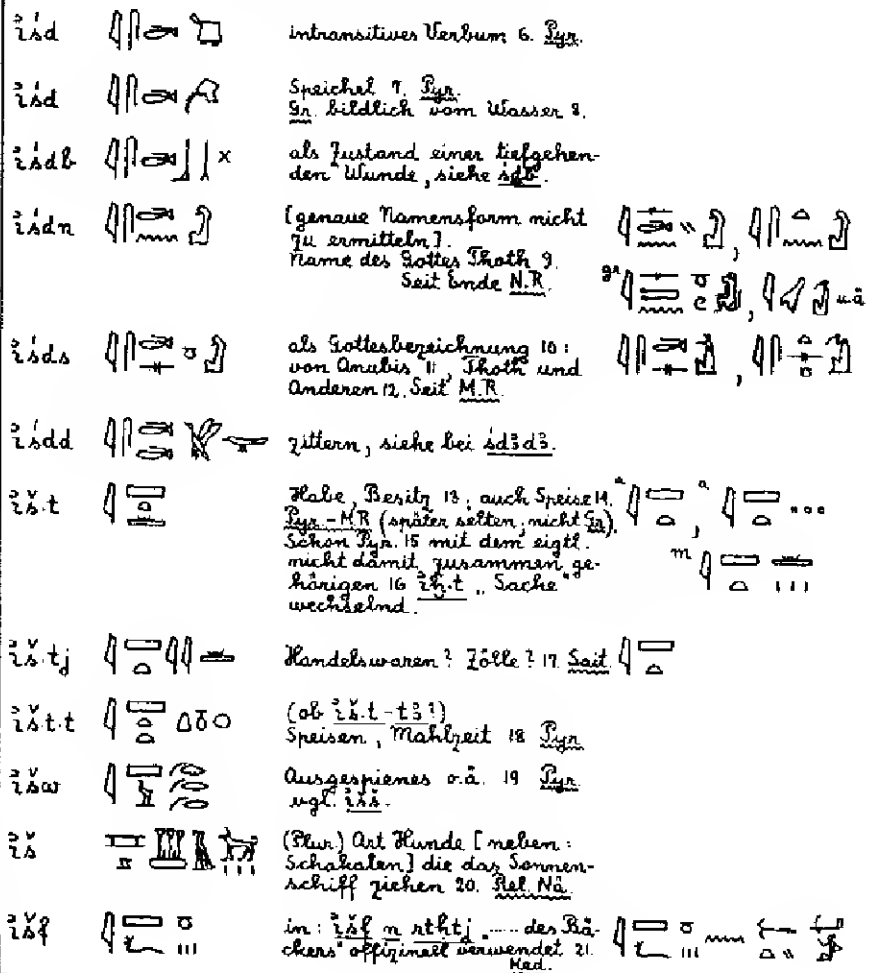 ỉśd intransitives Verbum 6. Pyr.
ỉśd Speichel 7. Pyr.
Gr. bildlich vom Wasser 8.
ỉśdb als Zustand einer tiefgehen-
den Wunde, siehe śdb.
ỉśdn [genaue Namensform nicht
zu ermitteln].
Name des Gottes Thoth 9.
Seit Ende N.R.
gr u.ä
ỉśds als Gottesbezeichnung 10:
von Anubis 11, Thoth und
Anderen 12. Seit M.R.
ỉśdd zittern, siehe bei śdꜣdꜣ.
ỉš.t Habe, Besitz 13; auch Speise 14. a a
Pyr-MR (später selten, nicht Gr).
Schon Pyr. 15 mit dem eigtl.
nicht damit zusammen ge- m
hörigen 16 ỉḫ.t „Sache"
wechselnd.
ỉš.tj Handelswaren? Zölle? 17. Sait.
ỉšt.t (ob ỉš.t-tꜣ?)
Speisen, Mahlzeit 18 Pyr
ỉšw Ausgespienes o.ä. 19 Pyr.
vgl. ỉšš.
ỉš (Plur.) Art Hunde [neben:
Schakalen] die das Sonnen-
schiff ziehen 20. Rel. Nä.
ỉšf in: ỉšf n rthtj „..... des Bä-
ckers" offizinell verwendet 21.
Med.